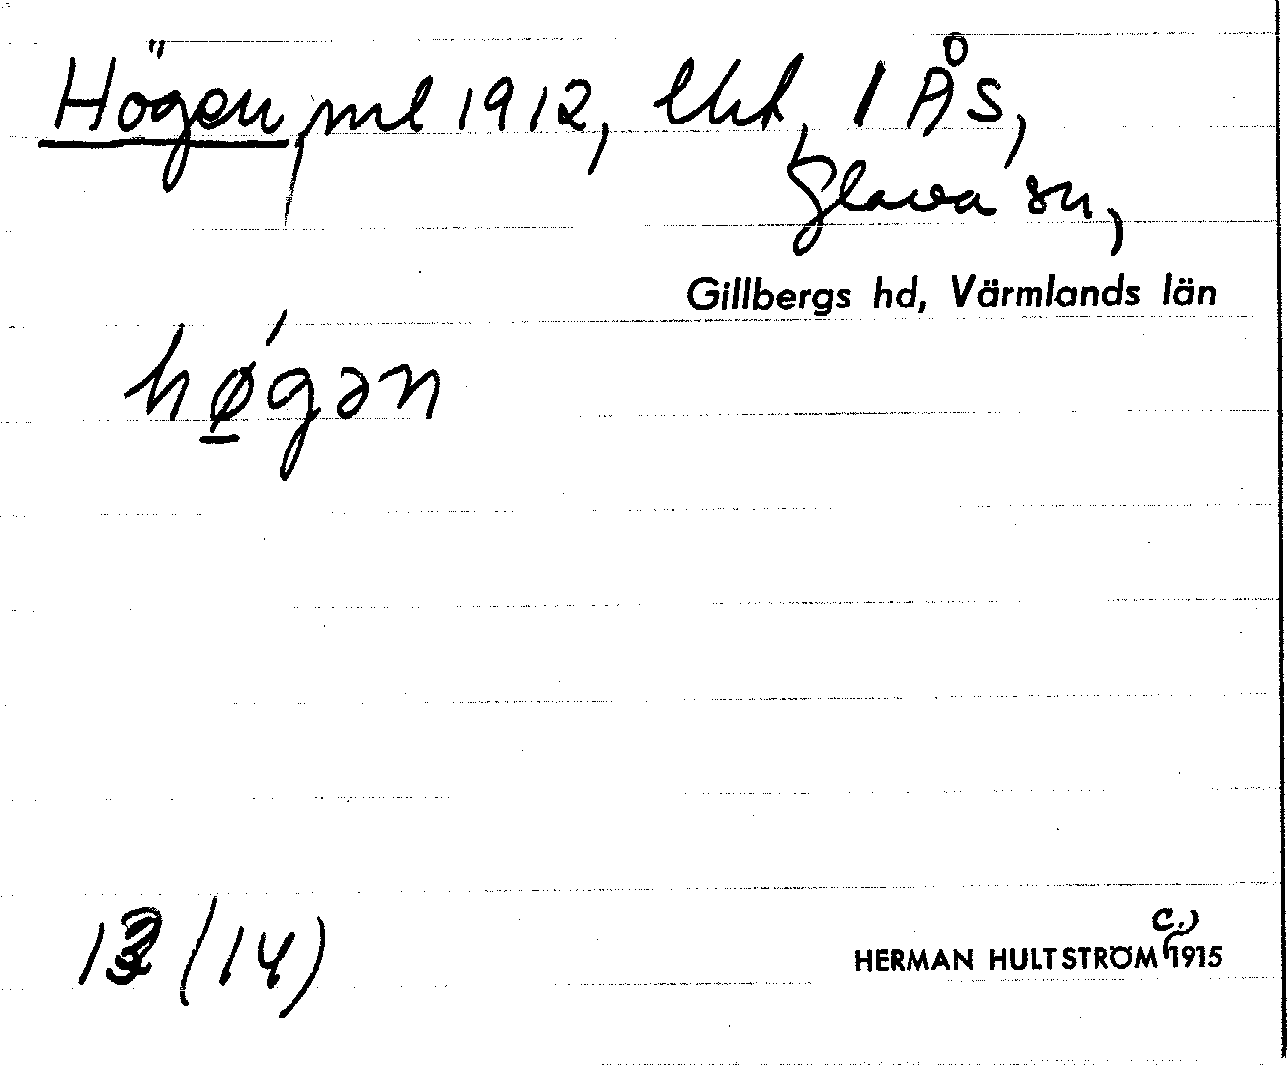 Högen, ml 1912, lht, 1 ÅS,
Glava sn,
Gillbergs hd, Värmlands län
hǿ̲gən
13 (14)
c.)
HERMAN HULTSTRÖM 1915